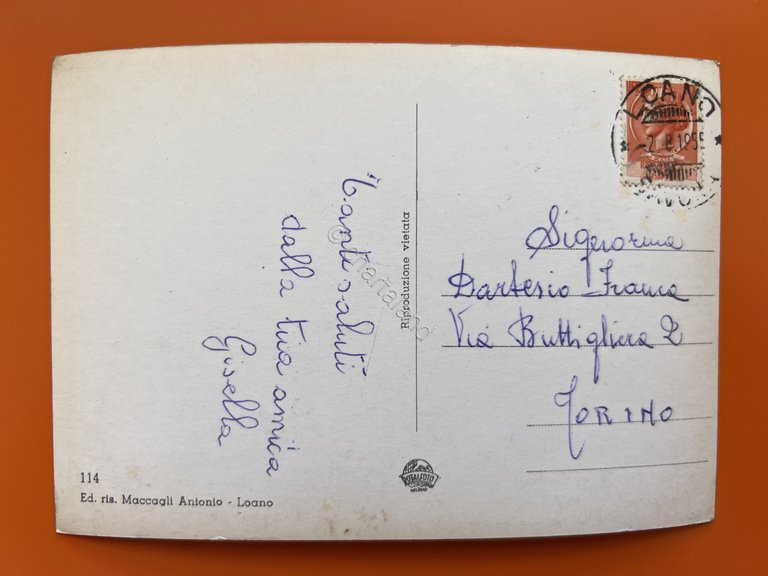 LOANO
-2.8.1955
Tanti saluti
dalla tua amica
Gisella
Riproduzione vietata
Signorina
Dartesio Franca
Via Buttigliera 2
TORINO
114
Ed. ris. Maccagli Antonio - Loano